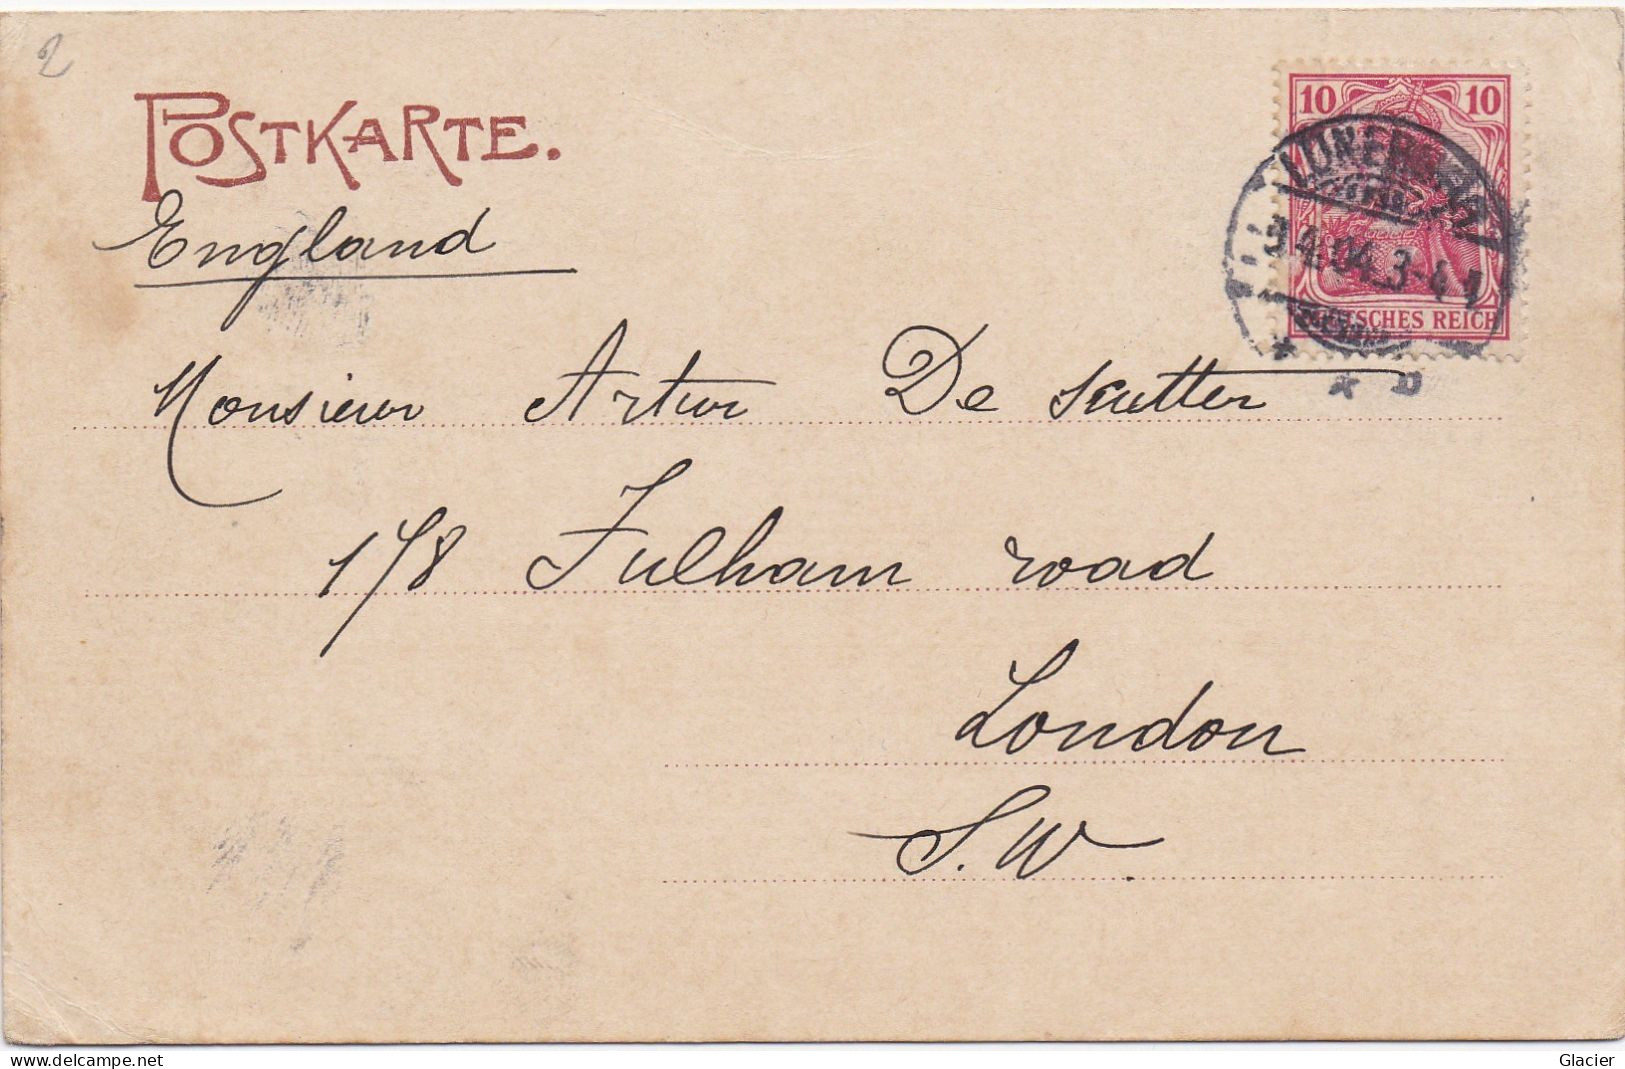 2
POSTKARTE.
England
10 10
3.4.04. 3-4
DEUTSCHES REICH
Monsieur Artur De Scutter
178 Fulham road
London
S.W.
www.delcampe.net
Glacier